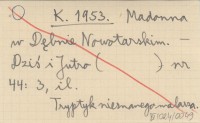 K. 1953. Madonna
w Dębnie Nowotarskim. –
Dziś i Jutro ( ) nr
44: 3, il.
Tryptyk nieznanego malarza.